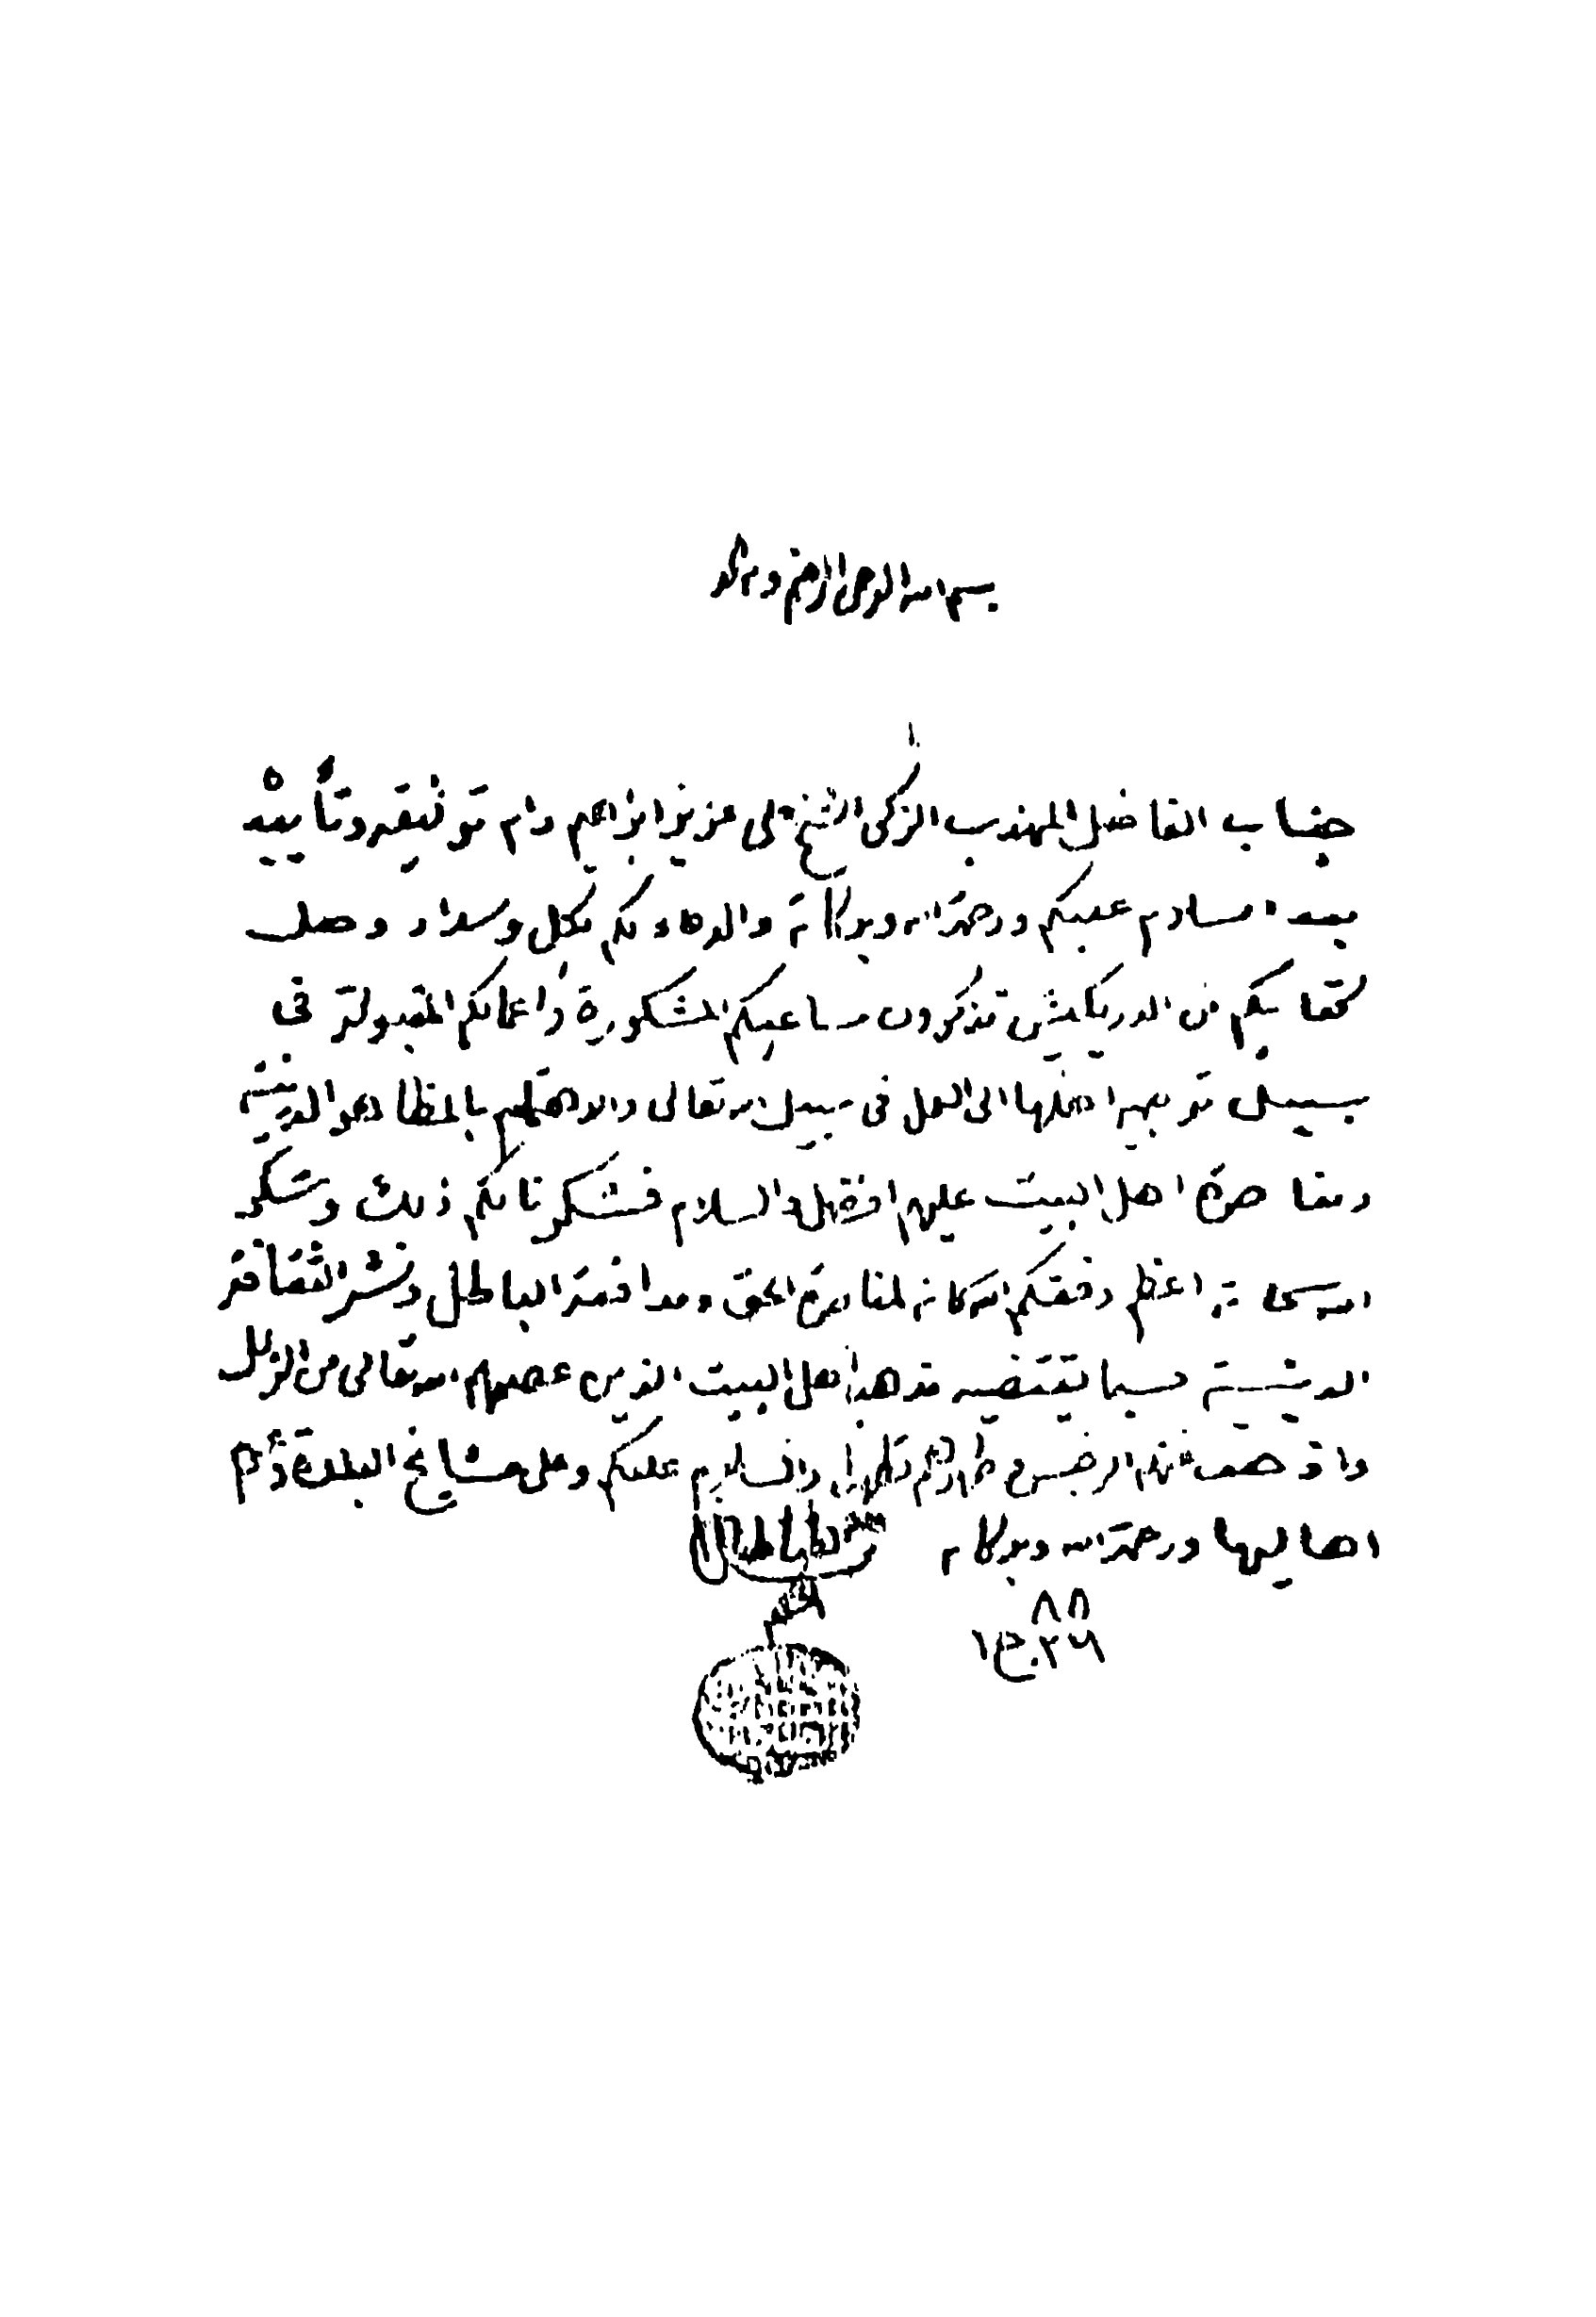 بسم الله الرحمن الرحيم وله الحمد
جناب الفاضل المهذب الزكي الشيخ علي عزيز ابراهيم دام توفيقه وتأييده
بعد السلام عليكم ورحمة الله وبركاته والدعاء لكم بكل وسداد وصل
كتابكم من الدريكيش تذكرون مساعيكم المشكورة واعمالكم المقبولة في
سبيل توجيه اهلها الى العمل في سبيل الله تعالى والاهتمام بالمظاهر الدينية
ومناصرة اهل البيت عليهم افضل السلام فشكرنا لكم ذلك ونشكر
الله سبحانه اعظم وفقكم الله سبحانه لمناصرة الحق ومدافعة الباطل ونشر الثقافة
الدينية حسبما يقتضيه مذهب اهل البيت الذين عصمهم الله تعالى من الزلل
واذهب عنهم الرجس وطهرهم تطهيرا والسلام عليكم وعلى مشايخ البلدة
اهاليها ورحمة الله وبركاته
٨٨
٢٦ ج١